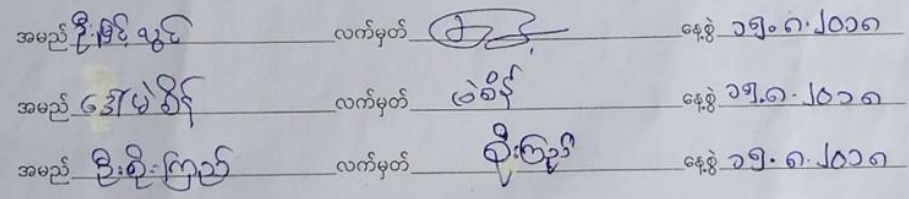 အမည် ဦးမြင့်သွင် လက်မှတ် နေ့စွဲ ၁၅.၈.၂၀၁၈
အမည် ဒေါ်မဲစိန် လက်မှတ် မဲစိန် နေ့စွဲ ၁၅.၈.၂၀၁၈
အမည် ဦးစိုးကြည် လက်မှတ် စိုးကြည် နေ့စွဲ ၁၅.၈.၂၀၁၈